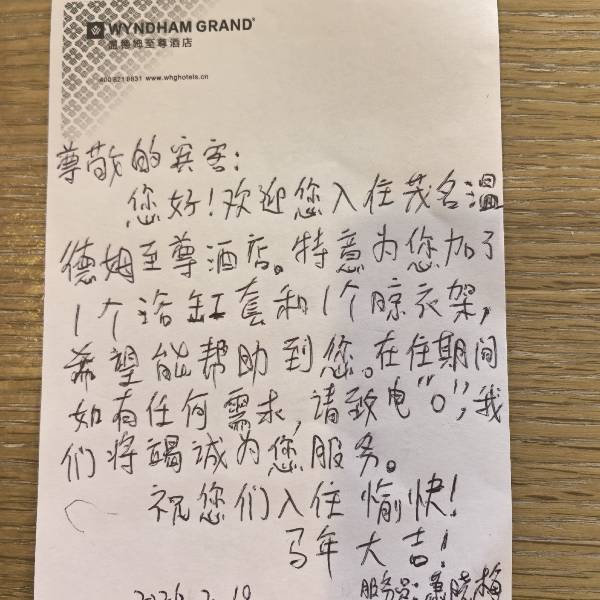 WYNDHAM GRAND®
温德姆至尊酒店
400 821 9831 www.whghotels.cn
尊敬的宾客:
您好!欢迎您入住茂名温
德姆至尊酒店。特意为您加了
1个浴缸套和1个晾衣架,
希望能帮助到您。在住期间
如有任何需求,请致电"0",我
们将竭诚为您服务。
祝您们入住愉快!
马年大吉!
服务员:晓梅